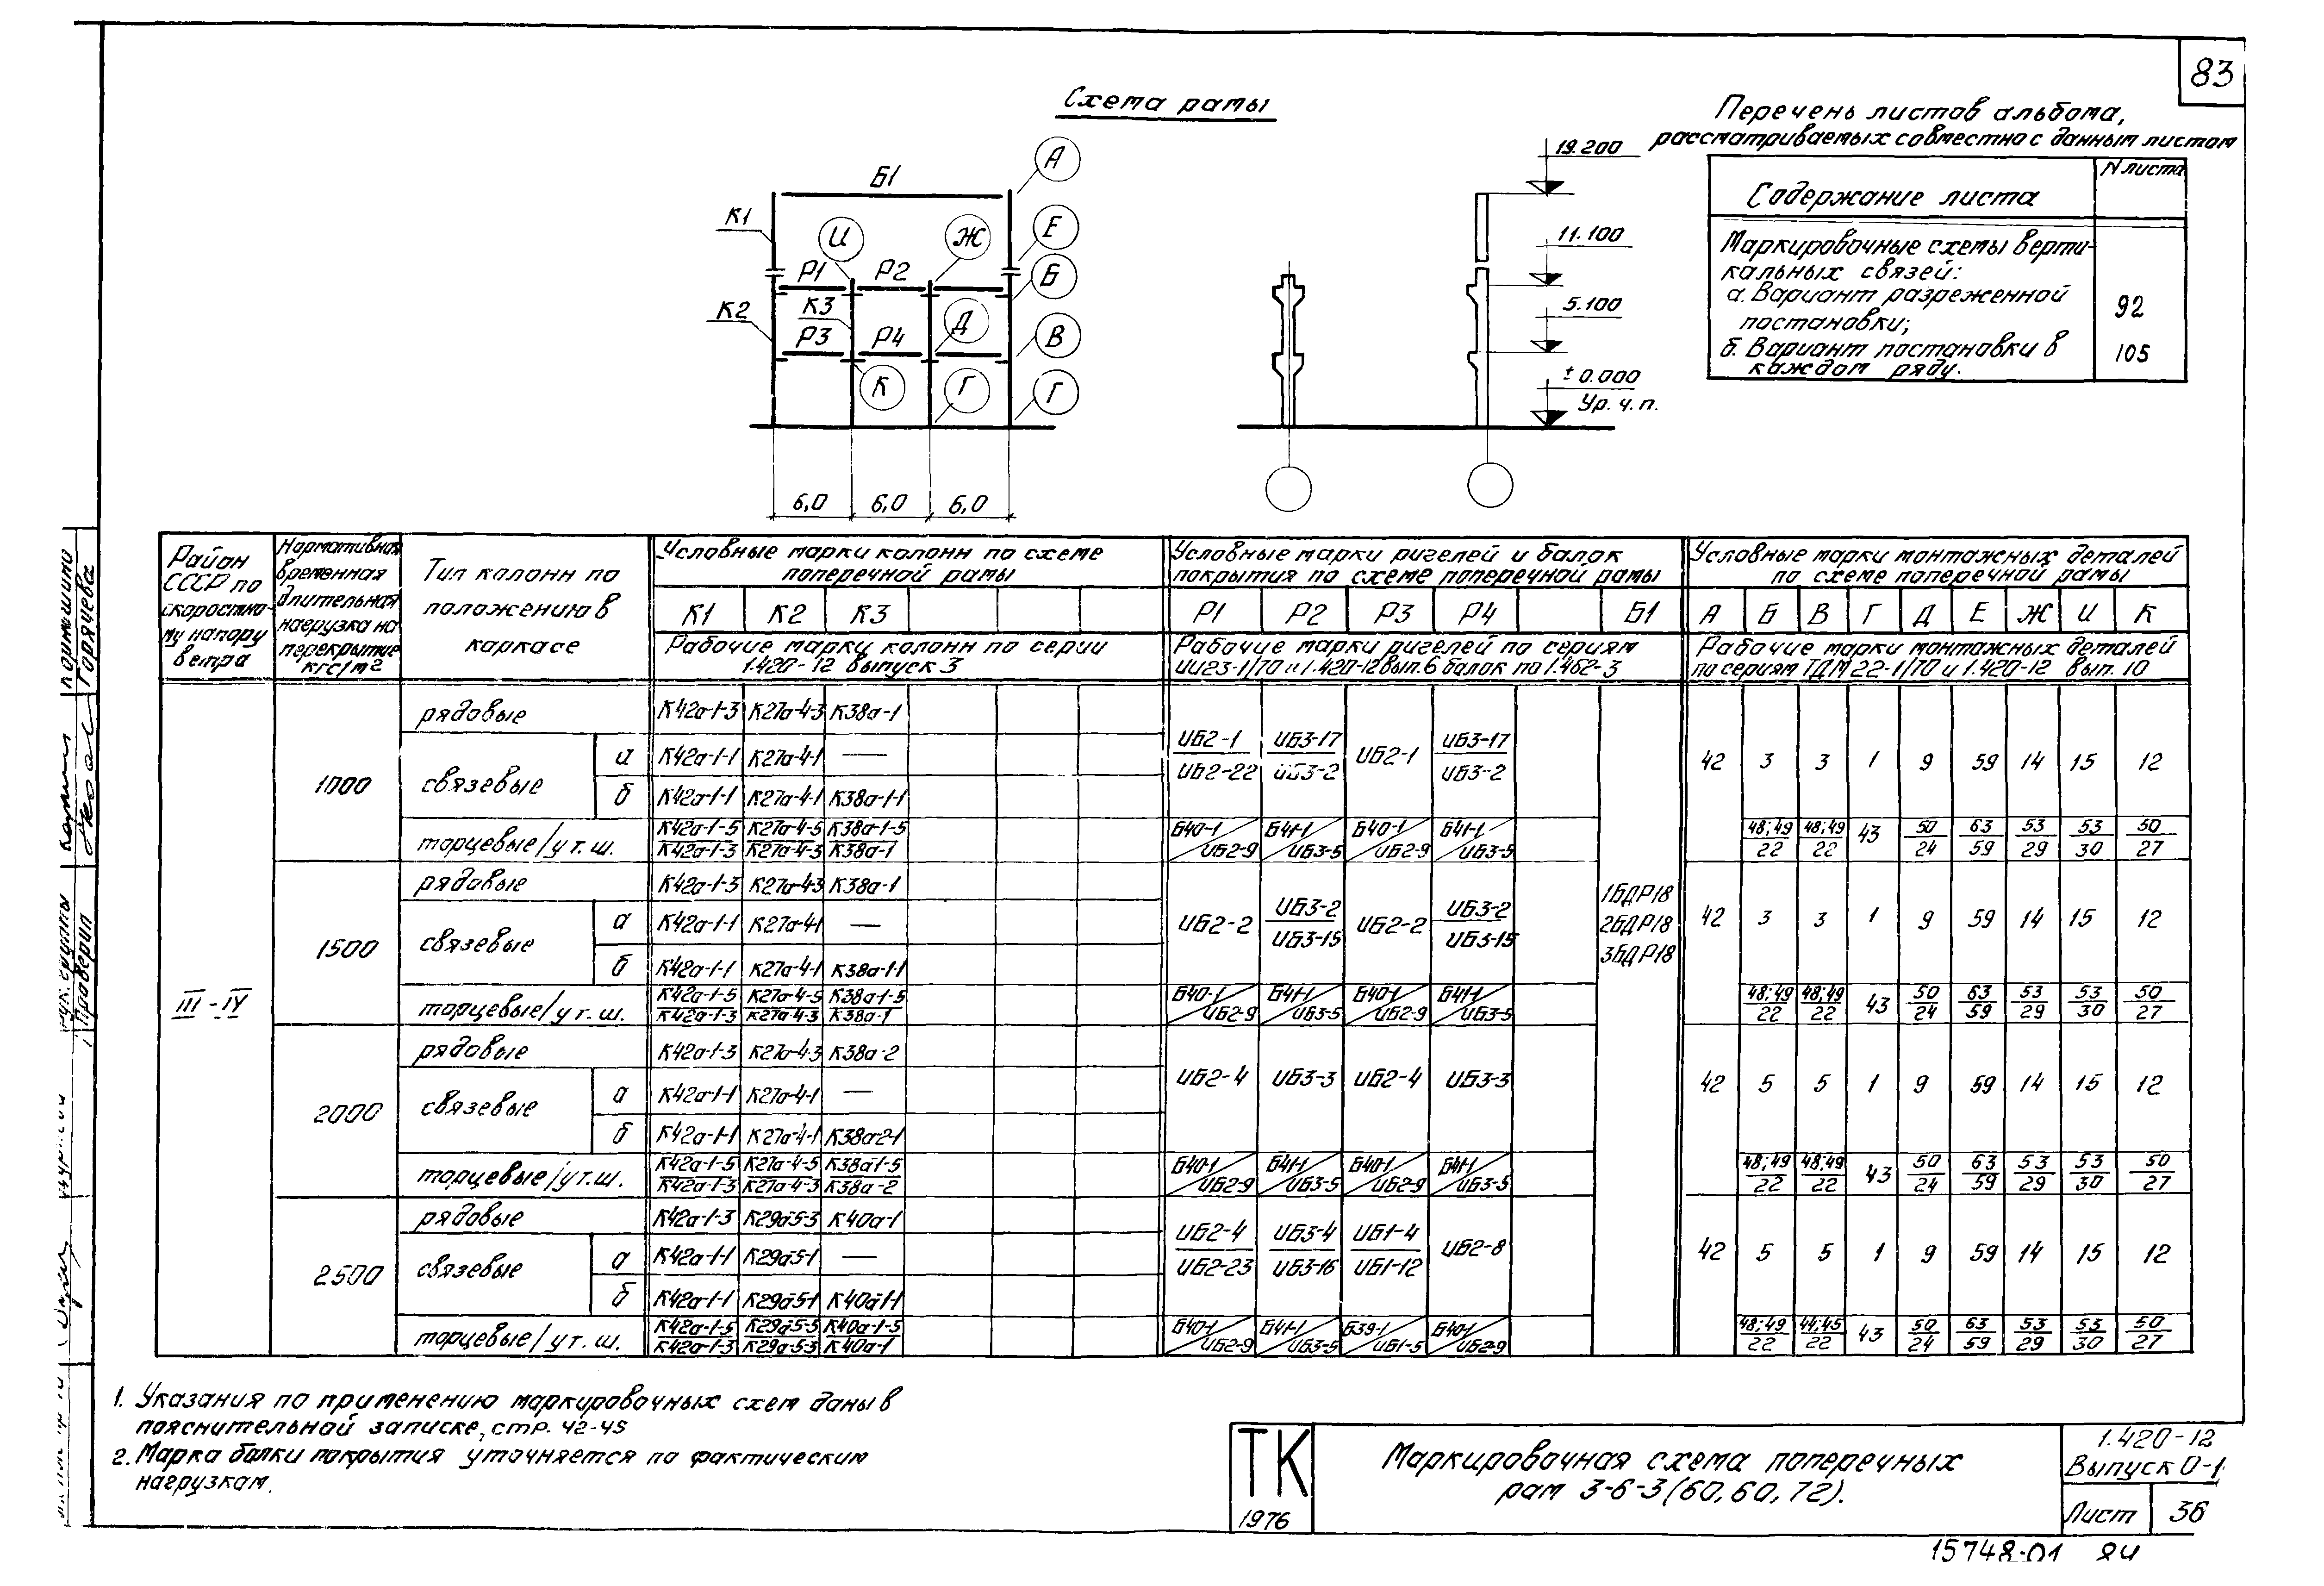 83
Схема рамы
Перечень листов альбома,
рассматриваемых совместно с данным листом
Содержание листа
N листа
Маркировочные схемы верти-
кальных связей:
а. Вариант разреженной
постановки;
92
б. Вариант постановки в
каждом ряду.
105
Б1
К1
К2
К3
Р1
Р2
Р3
Р4
И
Ж
А
Е
Б
Д
В
К
Г
Г
6,0
6,0
6,0
19.200
11.100
5.100
± 0.000
Ур. ч. п.
Район
СССР по
скоростно-
му напору
ветра
Нормативная
временная
длительная
нагрузка на
перекрытие
кгс/м2
Тип колонн по
положению в
каркасе
Условные марки колонн по схеме
поперечной рамы
К1 К2 К3
Рабочие марки колонн по серии
1.420-12 выпуск 3
Условные марки ригелей и балок
покрытия по схеме поперечной рамы
Р1 Р2 Р3 Р4 Б1
Рабочие марки ригелей по сериям
ИИ23-1/70 и 1.420-12 вып. 6 балок по 1.462-3
Условные марки монтажных деталей
по схеме поперечной рамы
А Б В Г Д Е Ж И К
Рабочие марки монтажных деталей
по сериям ТДМ 22-1/70 и 1.420-12 вып. 10
III-IV
1000
рядовые К42а-1-3 К27а-4-3 К38а-1
связевые
а К42а-1-1 К27а-4-1 —
б К42а-1-1 К27а-4-1 К38а-1-1
ИБ2-1 ИБ3-17 ИБ2-1 ИБ3-17
ИБ2-22 ИБ3-2 ИБ3-2
42 3 3 1 9 59 14 15 12
торцевые/у т.ш. К42а-1-5 К27а-4-5 К38а-1-5
К42а-1-3 К27а-4-3 К38а-1
Б40-1 Б41-1 Б40-1 Б41-1
ИБ2-9 ИБ3-5 ИБ2-9 ИБ3-5
48;49 48;49 43 50 63 53 53 50
22 22 24 59 29 30 27
1500
рядовые К42а-1-3 К27а-4-3 К38а-1
связевые
а К42а-1-1 К27а-4-1 —
б К42а-1-1 К27а-4-1 К38а-1-1
ИБ2-2 ИБ3-2 ИБ2-2 ИБ3-2
ИБ3-15 ИБ3-15
1БДР18
2БДР18
3БДР18
42 3 3 1 9 59 14 15 12
торцевые/у т.ш. К42а-1-5 К27а-4-5 К38а-1-5
К42а-1-3 К27а-4-3 К38а-1
Б40-1 Б41-1 Б40-1 Б41-1
ИБ2-9 ИБ3-5 ИБ2-9 ИБ3-5
48;49 48;49 43 50 63 53 53 50
22 22 24 59 29 30 27
2000
рядовые К42а-1-3 К27а-4-3 К38а-2
связевые
а К42а-1-1 К27а-4-1 —
б К42а-1-1 К27а-4-1 К38а-2-1
ИБ2-4 ИБ3-3 ИБ2-4 ИБ3-3
42 5 5 1 9 59 14 15 12
торцевые/у т.ш. К42а-1-5 К27а-4-5 К38а-1-5
К42а-1-3 К27а-4-3 К38а-2
Б40-1 Б41-1 Б40-1 Б41-1
ИБ2-9 ИБ3-5 ИБ2-9 ИБ3-5
48;49 48;49 43 50 63 53 53 50
22 22 24 59 29 30 27
2500
рядовые К42а-1-3 К29а-5-3 К40а-1
связевые
а К42а-1-1 К29а-5-1 —
б К42а-1-1 К29а-5-1 К40а-1-1
ИБ2-4 ИБ3-4 ИБ1-4 ИБ2-8
ИБ2-23 ИБ3-16 ИБ1-12
42 5 5 1 9 59 14 15 12
торцевые/у т.ш. К42а-1-5 К29а-5-3 К40а-1-5
К42а-1-3 К29а-5-3 К40а-1
Б40-1 Б41-1 Б39-1 Б40-1
ИБ2-9 ИБ3-5 ИБ1-5 ИБ2-9
48;49 44;45 43 50 63 53 53 50
22 22 24 59 29 30 27
1. Указания по применению маркировочных схем даны в
пояснительной записке, стр. 42-45
2. Марка балки покрытия уточняется по фактическим
нагрузкам.
ТК
1976
Маркировочная схема поперечных
рам 3-6-3 (60, 60, 72).
1.420-12
Выпуск 0-1
Лист 36
15748-01 84
Кормишина
Горячева
Проверил